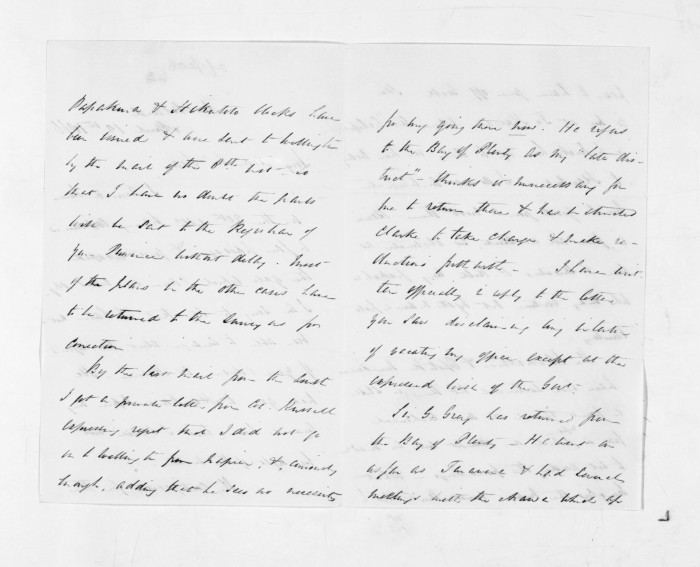 Papakura & Hikutoto blocks have
been issued & were sent to Wellington
by the mail of the 8th inst - so
that I have no doubt the grants
will be sent to the Registrar of
your Province without delay. Most
of the plans in the other cases have
to be returned to the Surveyors for
correction.
By the last mail from the South
I got a private letter from Col. Russell
expressing regret that I did not go
on to Wellington from Napier, & curiously
enough, adding that he sees no necessity
for my going there now. He refers
to the Bay of Plenty as my "late dis-
trict" - thinks it unnecessary for
me to return there & has instructed
Clarke to take charge & make re-
ductions forthwith - I have writ-
ten officially in reply to the letter
you saw disclaiming any intention
of vacating my office except at the
expressed wish of the Govt.
Sir G Grey has returned from
the Bay of Plenty - He went on
as far as & had several
meetings with the